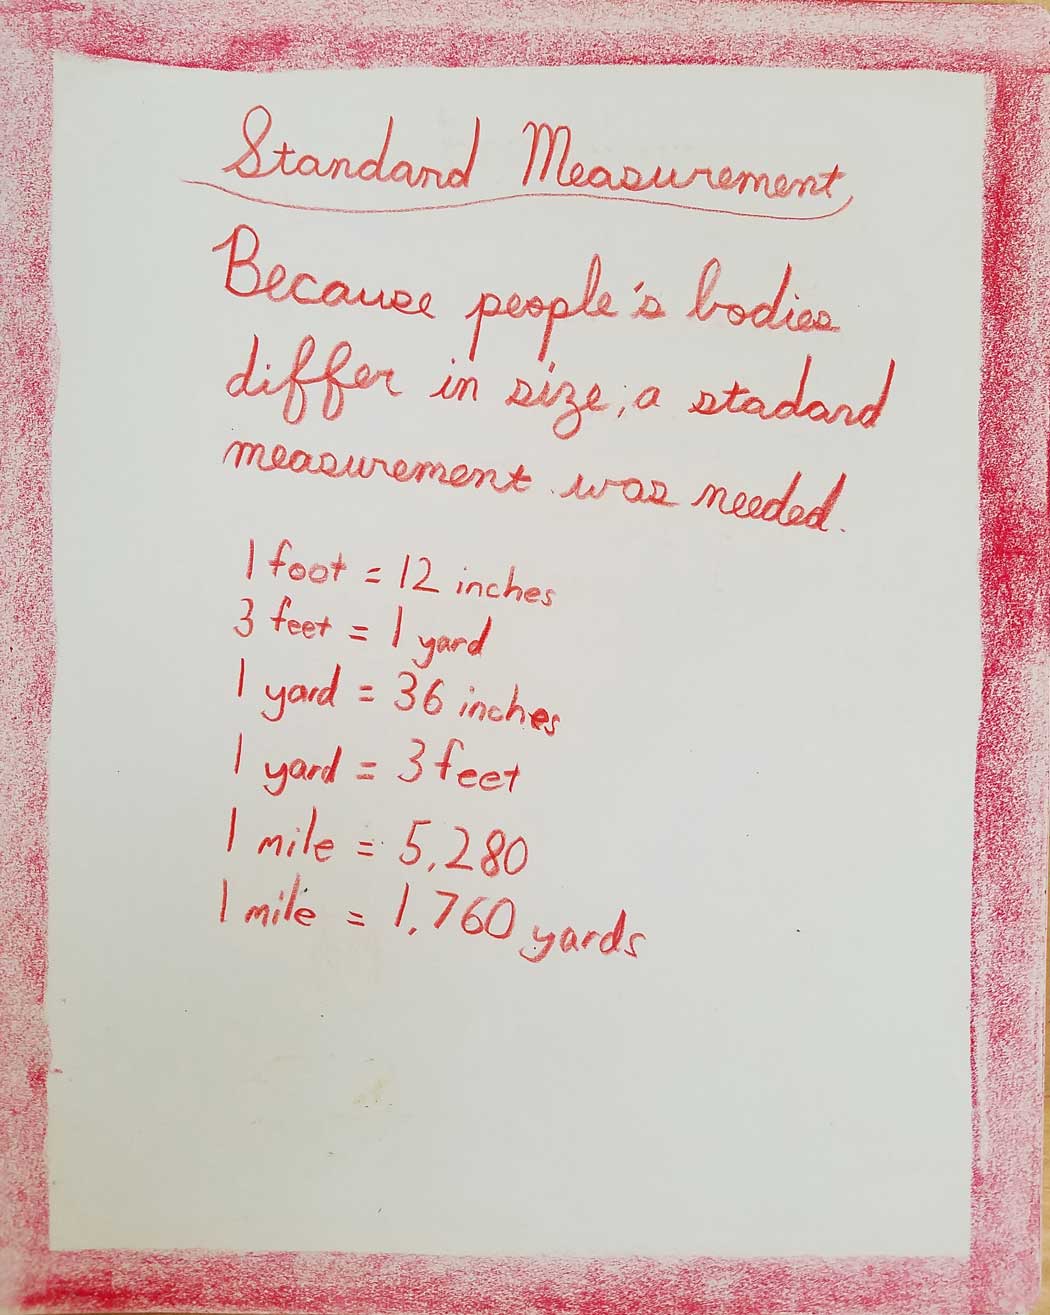 Standard Measurement
Because people's bodies
differ in size, a stadard
measurement was needed.
1 foot = 12 inches
3 feet = 1 yard
1 yard = 36 inches
1 yard = 3 feet
1 mile = 5,280
1 mile = 1,760 yards